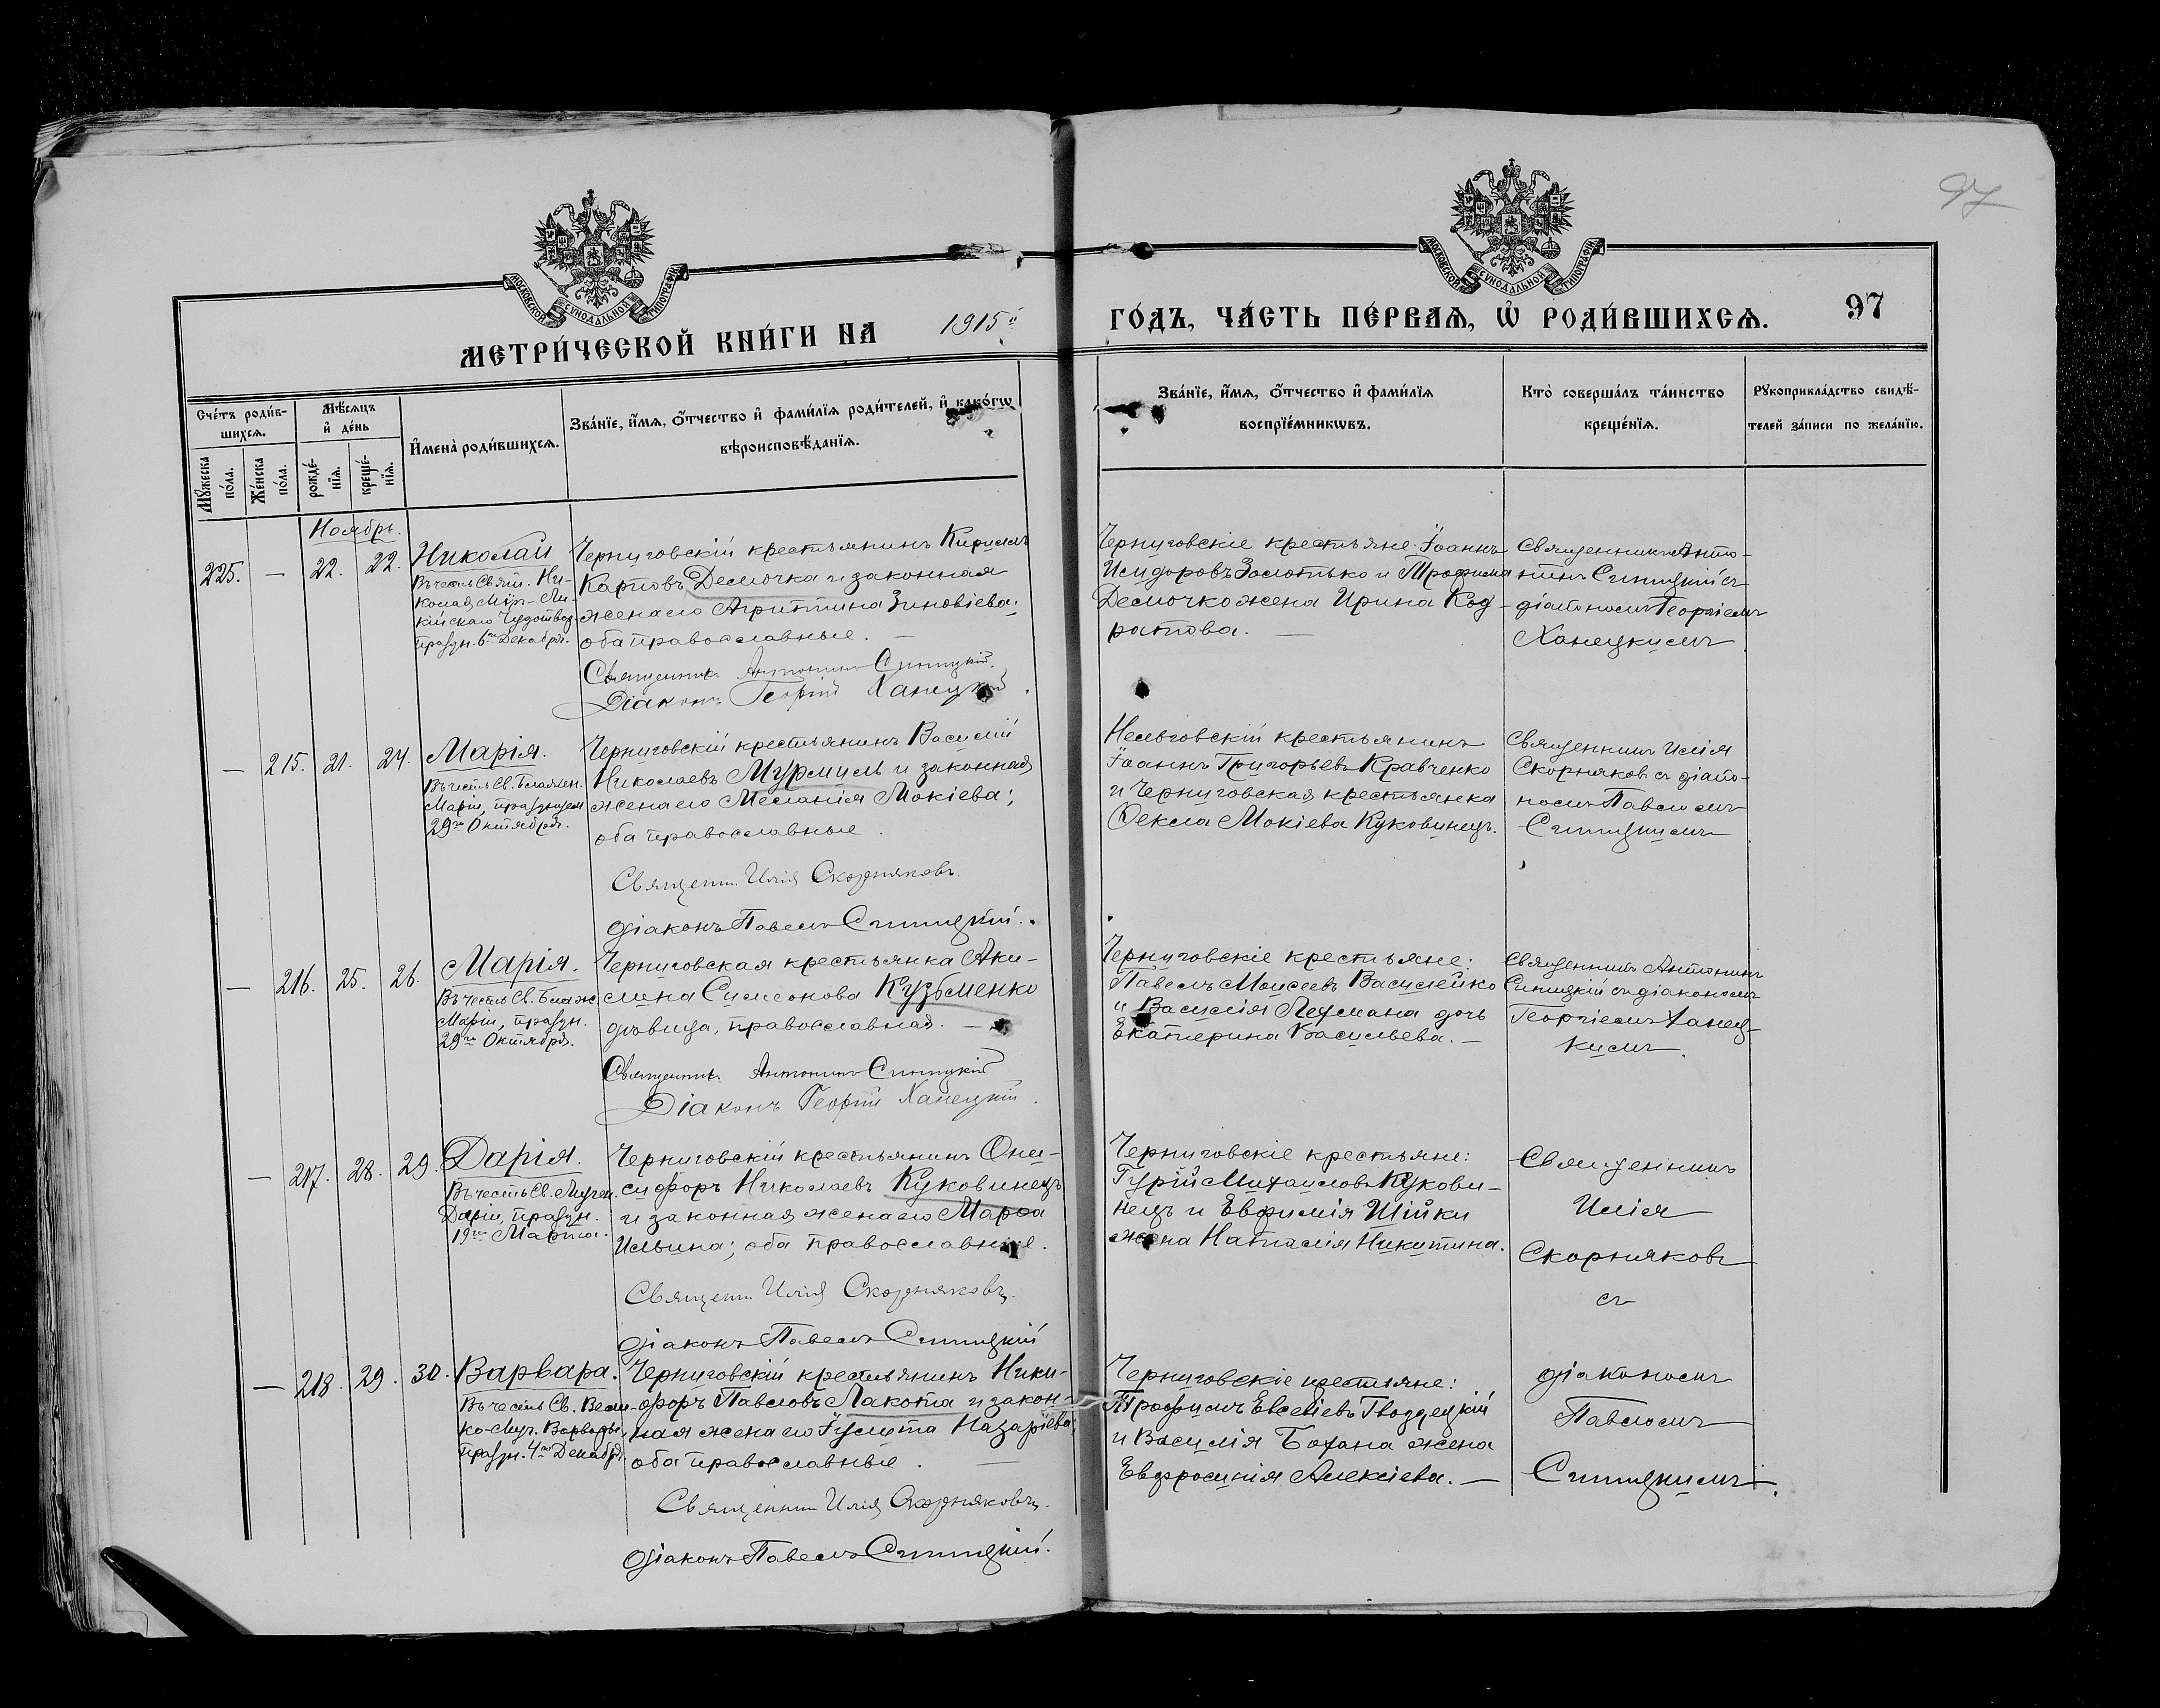 97
МОСКОВСКОЙ СУНОДАЛЬНОЙ ТИПОГРАФІИ
МОСКОВСКОЙ СУНОДАЛЬНОЙ ТИПОГРАФІИ
МЕТРИ́ЧЕСКОЙ КНИ́ГИ НА 1915й
ГО́ДЪ, ЧА́СТЬ ПЕ́РВАѦ, Ѡ҆ РОДИ́ВШИХСѦ.
97
Сче́тъ роди́в-
шихсѧ.
Мѣ́сѧцъ
и҆ де́нь
И҆мена̀ роди́вшихсѧ.
Зва́нїе, и҆́мѧ, ѻ҆́тчество и҆ фами́лїѧ роди́телей, и҆ како́гѡ
вѣроисповѣ́данїѧ.
Мꙋ́жеска
по́ла.
Же́нска
по́ла.
рожде́-
нїѧ.
креще́-
нїѧ.
Зва́нїе, и҆́мѧ, ѻ҆́тчество и҆ фами́лїѧ
воспрїе́мникѡвъ.
Кто̀ соверша́лъ та́инство
креще́нїѧ.
Рꙋкоприкла́дство свидѣ́-
телей за́писи по жела́нїю.
Ноябрь.
225. — 22. 22.
Николай
Въ честь Свят. Ни-
колая Мѵр-Ли-
кійскаго Чудотвор.
празд. 6го Декабря.
Черниговскій крестьянинъ Кириллъ
Карповъ Демочка и законная
жена его Агриппина Зиновіева;
оба православные. —
Священникъ Антонинъ Синицкій.
Діаконъ Георгій Ханецкій.
Черниговскіе крестьяне: Іоаннъ
Исидоровъ Золотько и Трофима
Демочко жена Ирина Код-
ратова. —
Священникъ Анто-
нинъ Синицкій съ
діакономъ Георгіемъ
Ханецкимъ
— 215. 21. 24.
Марія.
Въ честь Св. Блажен.
Маріи, празднуем
29го Октября.
Черниговскій крестьянинъ Василій
Николаевъ Мурмиль и законная
жена его Меланія Мокіева;
оба православные.
Священн. Илія Скорняковъ.
діаконъ Павелъ Синицкій.
Нельговскій крестьянинъ
Іоаннъ Григорьевъ Кравченко
и Черниговская крестьянка
Ѳекла Мокіева Куковинецъ.
Священникъ Илія
Скорняковъ съ діако-
номъ Павломъ
Синицкимъ
— 216. 25. 26.
Марія.
Въ честь Св. Блаж.
Маріи, праздн.
29го Октября.
Черниговская крестьянка Аки-
лина Симеонова Кузьменко
дѣвица, православная. —
Священникъ Антонинъ Синицкій
Діаконъ Георгій Ханецкій.
Черниговскіе крестьяне:
Павелъ Моисеевъ Василейко
и Василія Лехмана дочь
Екатерина Васильева. —
Священникъ Антонинъ
Синицкій съ діакономъ
Георгіемъ Ханец-
кимъ.
— 217. 28. 29.
Дарія.
Въ честь Св. Мучен.
Даріи, праздн.
19го Марта.
Черниговскій крестьянинъ Они-
сифоръ Николаевъ Куковинецъ
и законная жена его Марѳа
Ильина; оба православные.
Священн. Илія Скорняковъ.
діаконъ Павелъ Синицкій
Черниговскіе крестьяне:
Гурій Михаиловъ Кукови-
нецъ и Евфимія Шійки
жена Наталія Никитина.
Священникъ
Илія
Скорняковъ
съ
— 218. 29. 30.
Варвара.
Въ честь Св. Вели-
ко-Муч. Варвары,
праздн. 4го Декабр.
Черниговскій крестьянинъ Ники-
форъ Павловъ Лакота и закон-
ная жена его Іулита Назаріева;
оба православные. —
Священникъ Илія Скорняковъ.
діаконъ Павелъ Синицкій.
Черниговскіе крестьяне:
Трофимъ Евсевіевъ Гвоздецкій
и Василія Бохана жена
Евфросинія Алексіева. —
діакономъ
Павломъ
Синицкимъ.